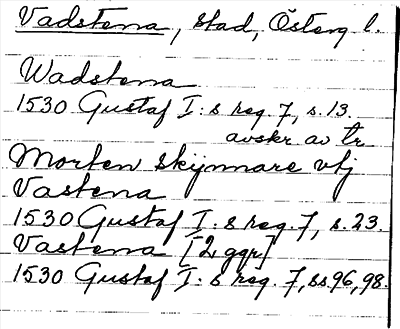 Vadstena, stad, Österg l.
Wadstena
1530 Gustaf I:s reg 7, s. 13.
avskr av tr
Morten Skijnnare vtj
Vastena
1530 Gustaf I:s reg. 7, s. 23.
Vastena [2 ggr]
1530 Gustaf I:s reg. 7, ss 96, 98.